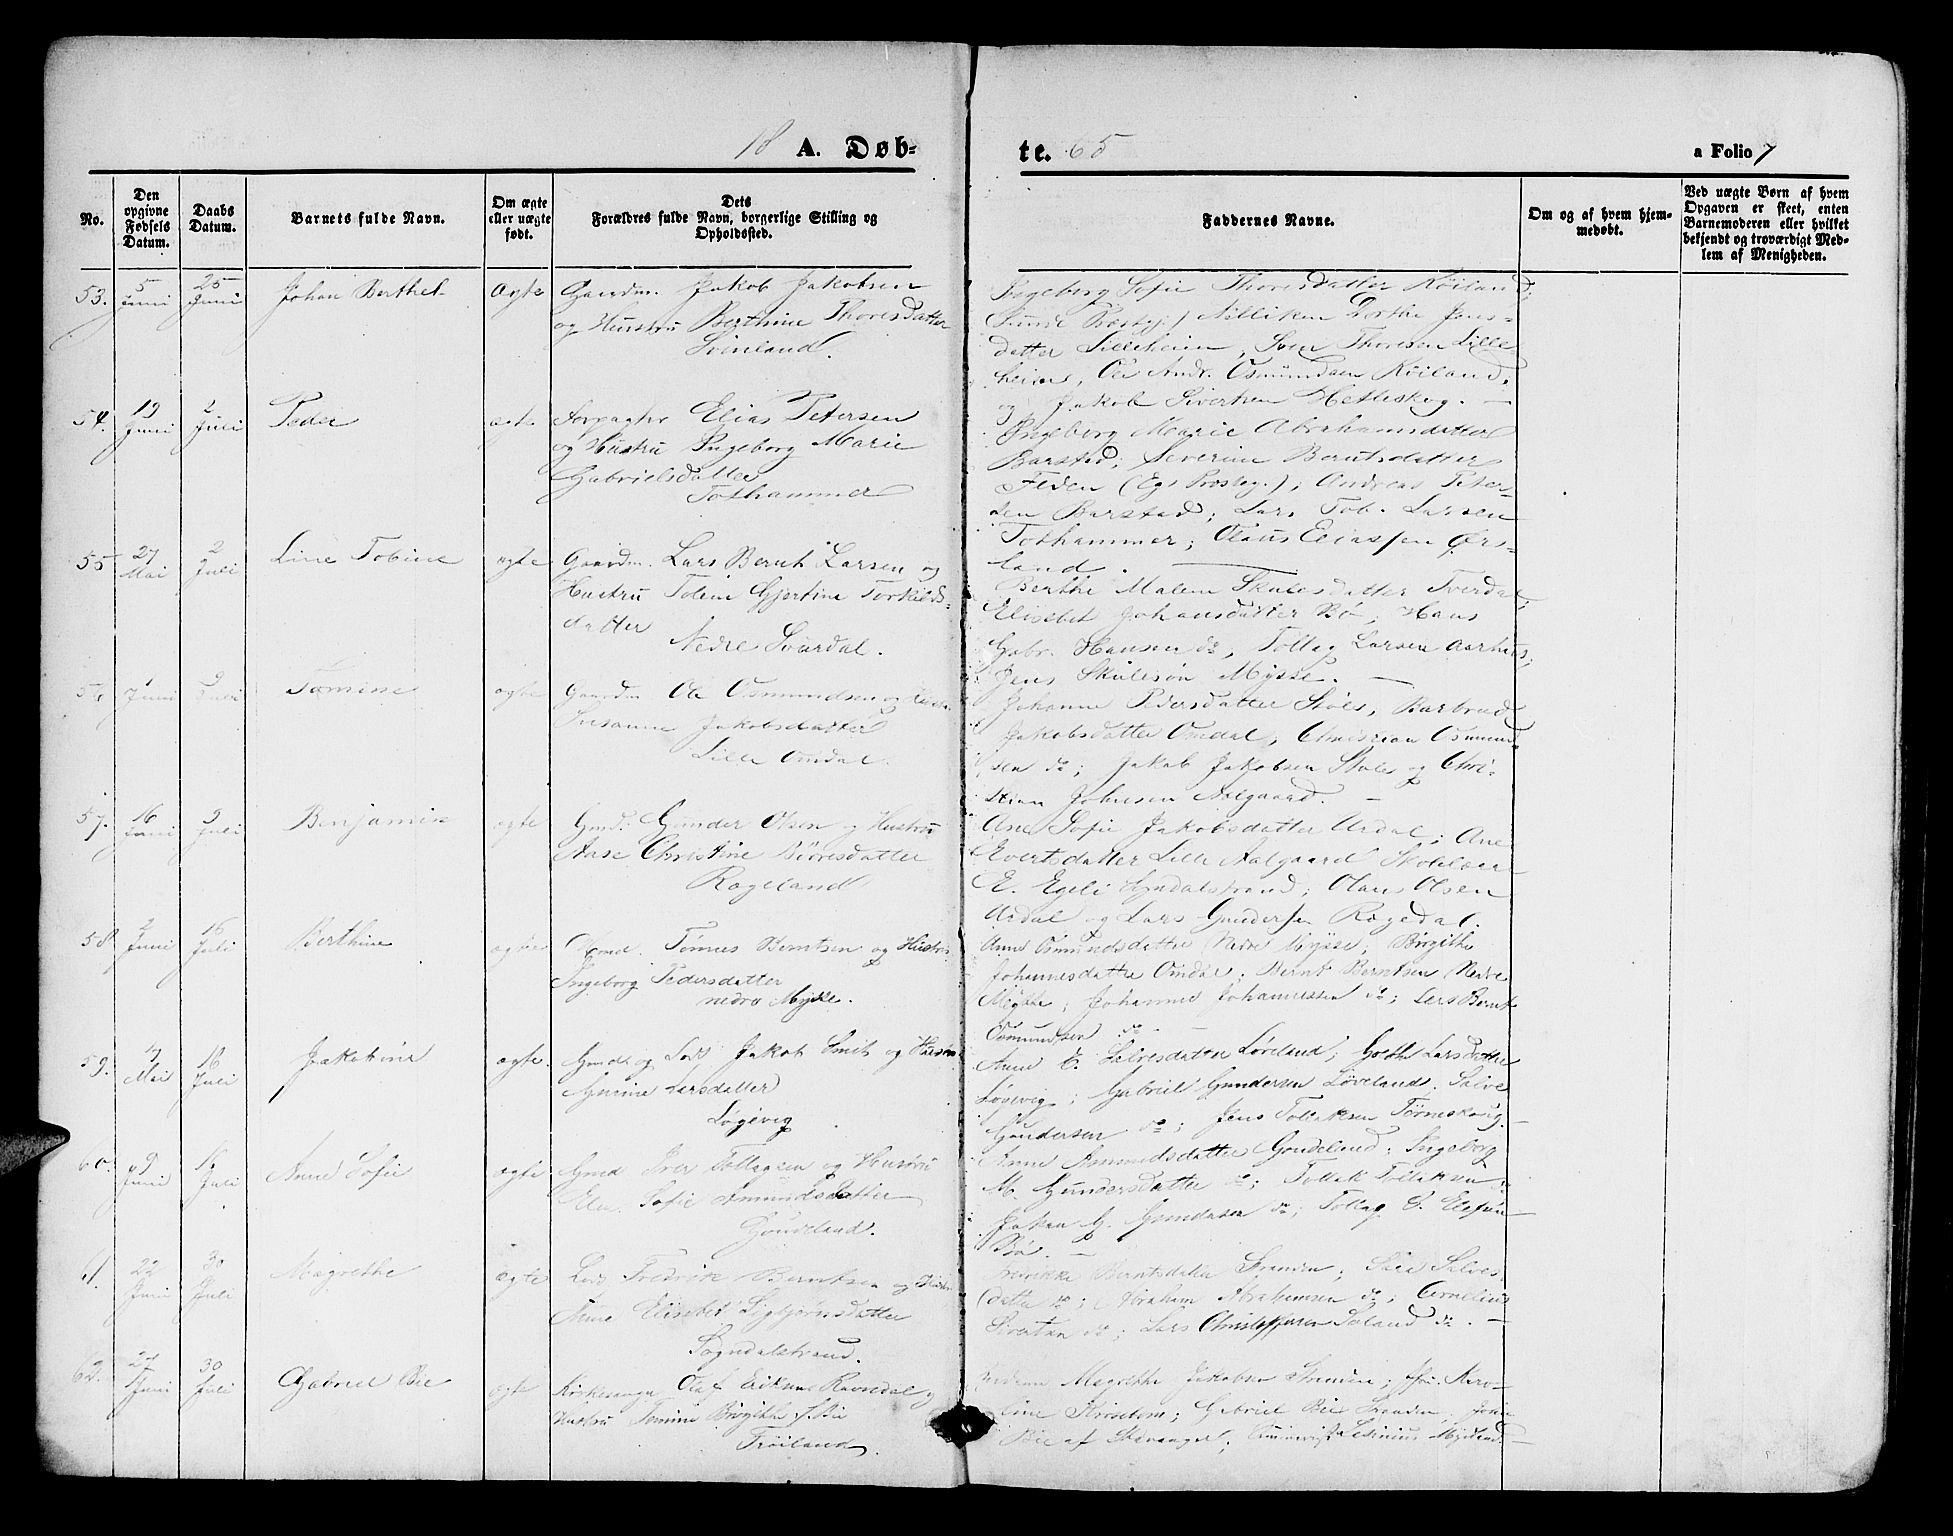 18 A. Døb-
te. 65
a Folio 7
No.
Den opgivne Fødsels Datum.
Daabs Datum.
Barnets fulde Navn.
Om ægte eller uægte født.
Dets Forældres fulde Navn, borgerlige Stilling og Opholdssted.
Faddernes Navne.
Om og af hvem hjemmedøbt.
Ved uægte Børn af hvem Opgaven er skeet, enten Barnemoderen eller hvilket bekjendt og troværdigt Medlem af Menigheden.
53. 5 Juni 25 Juni Johan Berthel ægte
Gaardm. Jakob Jakobsen
og Hustru Berthine Thoresdatter
Svinland.
Ingeborg Sofie Thoresdatter Røiland,
(Lunde Præstgj.) Nilliken Dorthe Jens-
datter Lilleheien, Sven Thoresen Lille
heien, Ole Andr. Osmundsen Røiland,
og Jakob Sivertsen Hetleskog. —
54. 19 Juni 2 Juli Peder ægte
Forpagter Elias Petersen
og Hustru Ingeborg Marie
Gabrielsdatter
Tothammer
Ingeborg Marie Abrahamsdatter
Barstad; Severine Berntsdatter
Feden (Egs Præstg.); Andreas Peter-
sen Barstad; Lars Tob. Larsen
Tothammer; Olaus Eliassen Ørs-
land. —
55 27 Mai 2 Juli Line Tobine ægte
Gaardm. Lars Bernt Larsen og
Hustru Tolene Gjertine Torkilds-
datter
Nedre Svardal.
Berthe Malene Skulesdatter Tverdal,
Elisebet Johansdatter Bø, Hans
Gabr. Hansen do, Tollag Larsen Aarhus;
Jens Skulesøn Mysse. —
56 1 Juni 9 Juli Tomine ægte
Gaardm Ole Osmundsen og
Susanne Jakobsdatter
Lille Omdal.
Johanne Pedersdatter Støls, Barbrud
Jakobsdatter Omdal, Christian Osmund-
sen do; Jakob Jakobsen Støls og Chri-
stian Johnsen Aalgaard. —
57. 16 Juni 9 Juli Benjamin ægte
Gmd. Gunder Olsen og Hustru
Aase Christine Børresdatter
Rægeland
Ane Sofie Jakobsdatter Ardal; Ane
Evertsdatter Lille Aalgaard
E. Egeli; Olaus Olsen
Ardal og Lars Gundersen Rægedal.
58 2 Juni 16 Juli Berthine ægte
Tønnes Berntsen og Hustru
Ingeborg Pedersdatter
nedre Mysse.
Anne Osmundsdatter Nedre Mysse, Birgithe
Johannesdatter Omdal; Bernt Berntsen Nedre
Mysse; Johannes Johannessen do; Lars Bernt
Osmundsen do. —
59. 7 Mai 16 Juli Jakobine ægte.
Gmd. og Lods Jakob Smit og Hustru
Gurine Larsdatter
Løgevig
Anne E. Salvesdatter Løveland; Larsdatter
Løgevig; Gabriel Gundersen Løveland. Salve
Gundersen do; Jens Tollaksen Tørneskoug. —
60. 29 Juni 16 Juli Anne Sofie ægte
Gmd Iver Tollagsen og Hustru
Elen Sofie Amundsdatter
Goudeland.
Anne Amundsdatter Goudeland; Ingeborg
M. Gundersdatter do; Tollak Tollaksen
Jakon G. Gundersen do; Tollag
Bø. —
61. 22 Juni 30 Juli Magrethe ægte
Lods Fredrik Berntsen og Hustru
Anne Elisebet Sigbjørnsdatter
Sogndalstrand.
Fredrikke Berntsdatter Stranden; Salves-
datter do; Abraham Abrahamsen do; Cornelius
Sivertsen do; Lars Christoffersen Soland do. —
62. 24 Juni 30 Juli Gabriel Bie ægte
Kirkesanger Olaf Eriksen Ravndal og
Hustru Tomine Birgitte f. Bie
Frøiland.
Magrethe Jakobsen Stranden; Karo-
line; Gabriel Bie Stranden,
Bie af Stavanger;